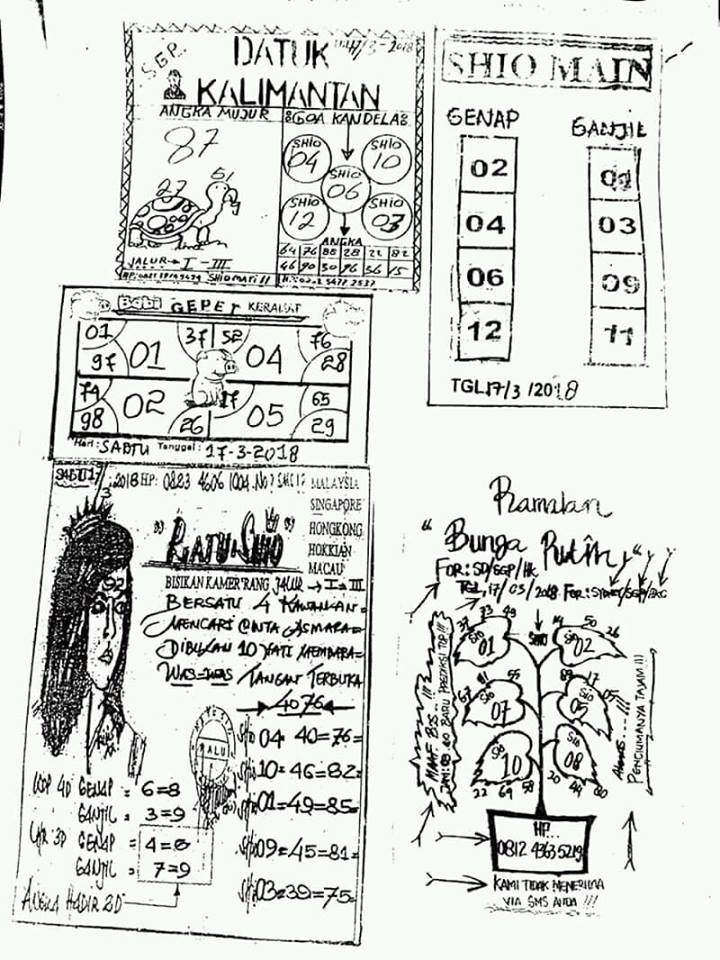 SGP.
DATUK
17/3-2018
KALIMANTAN
ANGKA MUJUR
GOA KANDELAS
87
27
51
SHIO 04
SHIO 10
SHIO 06
SHIO 12
SHIO 03
ANGKA
64 76 88 28 21 82
46 90 50 96 56 15
JALUR → I - III
SHIO MATI 11
SHIO MAIN
GENAP
GANJIL
02
04
03
06
09
12
11
TGL.17/3/2018
Babi GEPET KERAMAT
01 37 52 76
97 01 04 28
74 02 17 05 65
98 26 29
Hari: SABTU Tanggal: 17-3-2018
SABTU 17
3
2018 HP: 0823 4606 1004
MALAYSIA
SINGAPORE
HONGKONG
HOKKIAN
MACAU
"RATU SHIO"
BISIKAN KAMER'RANG JALUR → I = III
BERSATU 4 KAWANKAN=
MENCARI CINTA ASMARA=
DIBULAN 10 HATI MEMBARA=
WAS=WAS TANGAN TERBUKA
4076
04 40=76=
10=46=82=
01=49=85=
09=45=81=
03=39=75=
4D GENAP = 6=8
GANJIL = 3=9
3D GENAP = 4=8
GANJIL = 7=9
ANGKA HADIR 2D
Ramalan
"Bunga Putih"
FOR: SD/SGP/HK
TGL, 17/03/2018 FOR: SYDNEY/SGP/HKG
37 33 49
01
SHIO
14 50 26
02
67 91 55
07
89 17 05
05
22 69 58
10
20 44 80
08
MAAF BOS...!!!
BARU PREDIKSI TOP!!!
PENCIUMANYA TAJAM!!!
HP...
0812 4363 5219
KAMI TIDAK MENERIMA
VIA SMS ANDA!!!